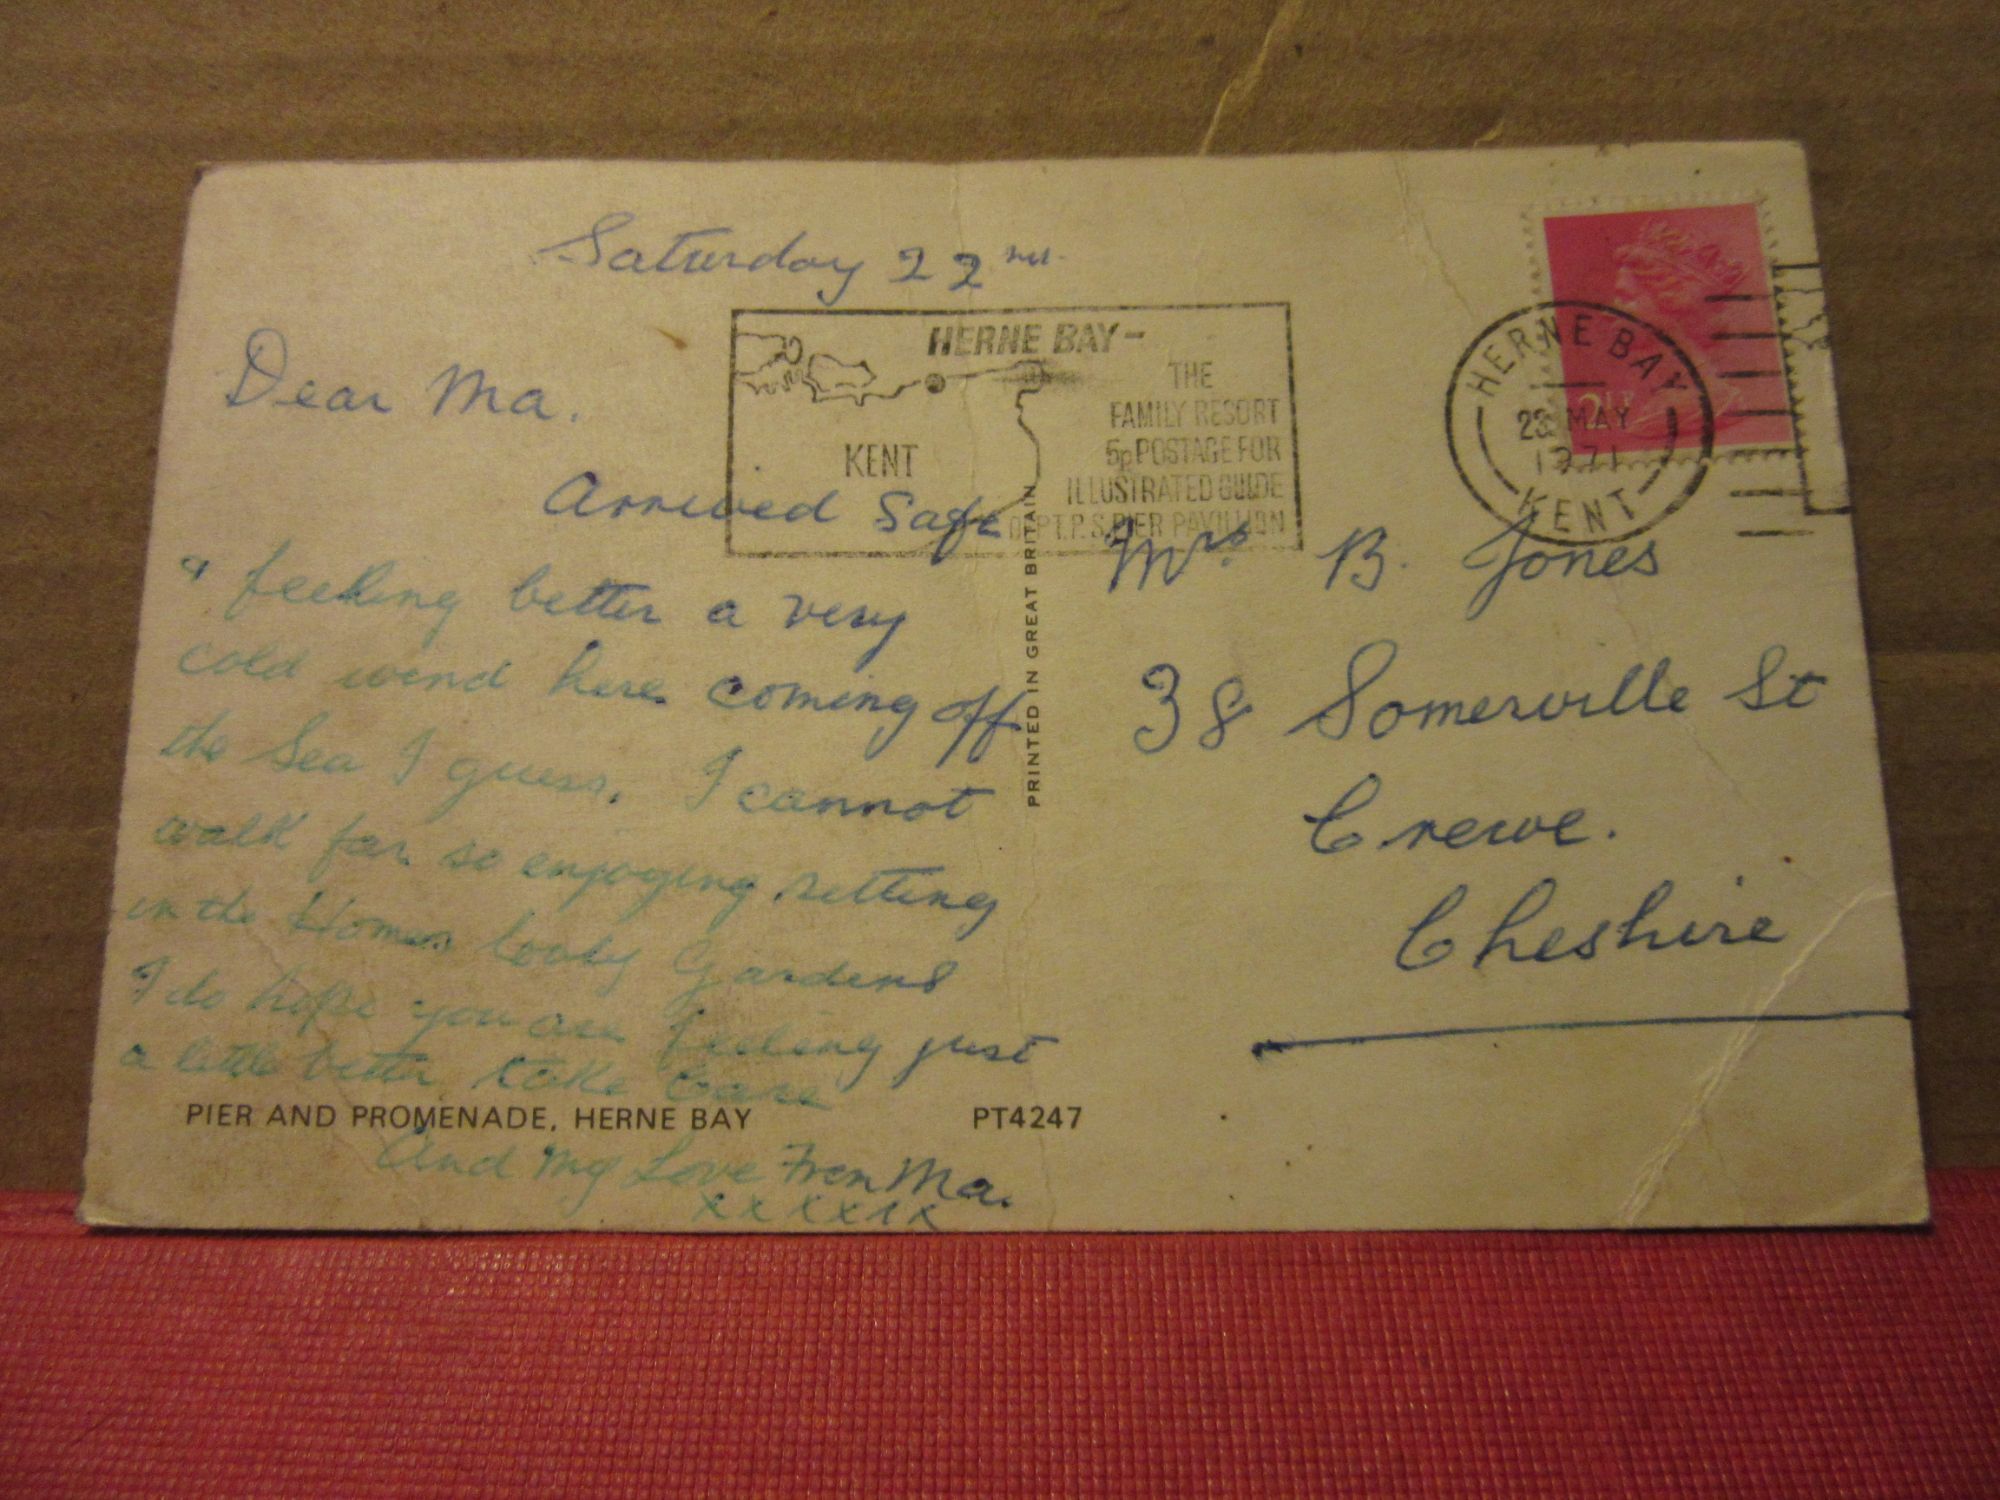 Saturday 22nd.
Dear Ma.
Arrived Safe
" feeling better a very
cold wind here coming off
the Sea I guess. I cannot
walk far so enjoying sitting
in the Homes lovly Gardens
I do hope you are feeling just
a little better take Care
And My Love From Ma.
xxxxxx
PIER AND PROMENADE, HERNE BAY
PT4247
PRINTED IN GREAT BRITAIN
HERNE BAY -
THE
FAMILY RESORT
5p POSTAGE FOR
ILLUSTRATED GUIDE
DEPT. P.S. PIER PAVILLION
KENT
HERNE BAY
23 MAY
1971
KENT
2½P
Mrs B. Jones
38 Somerville St
Crewe.
Cheshire